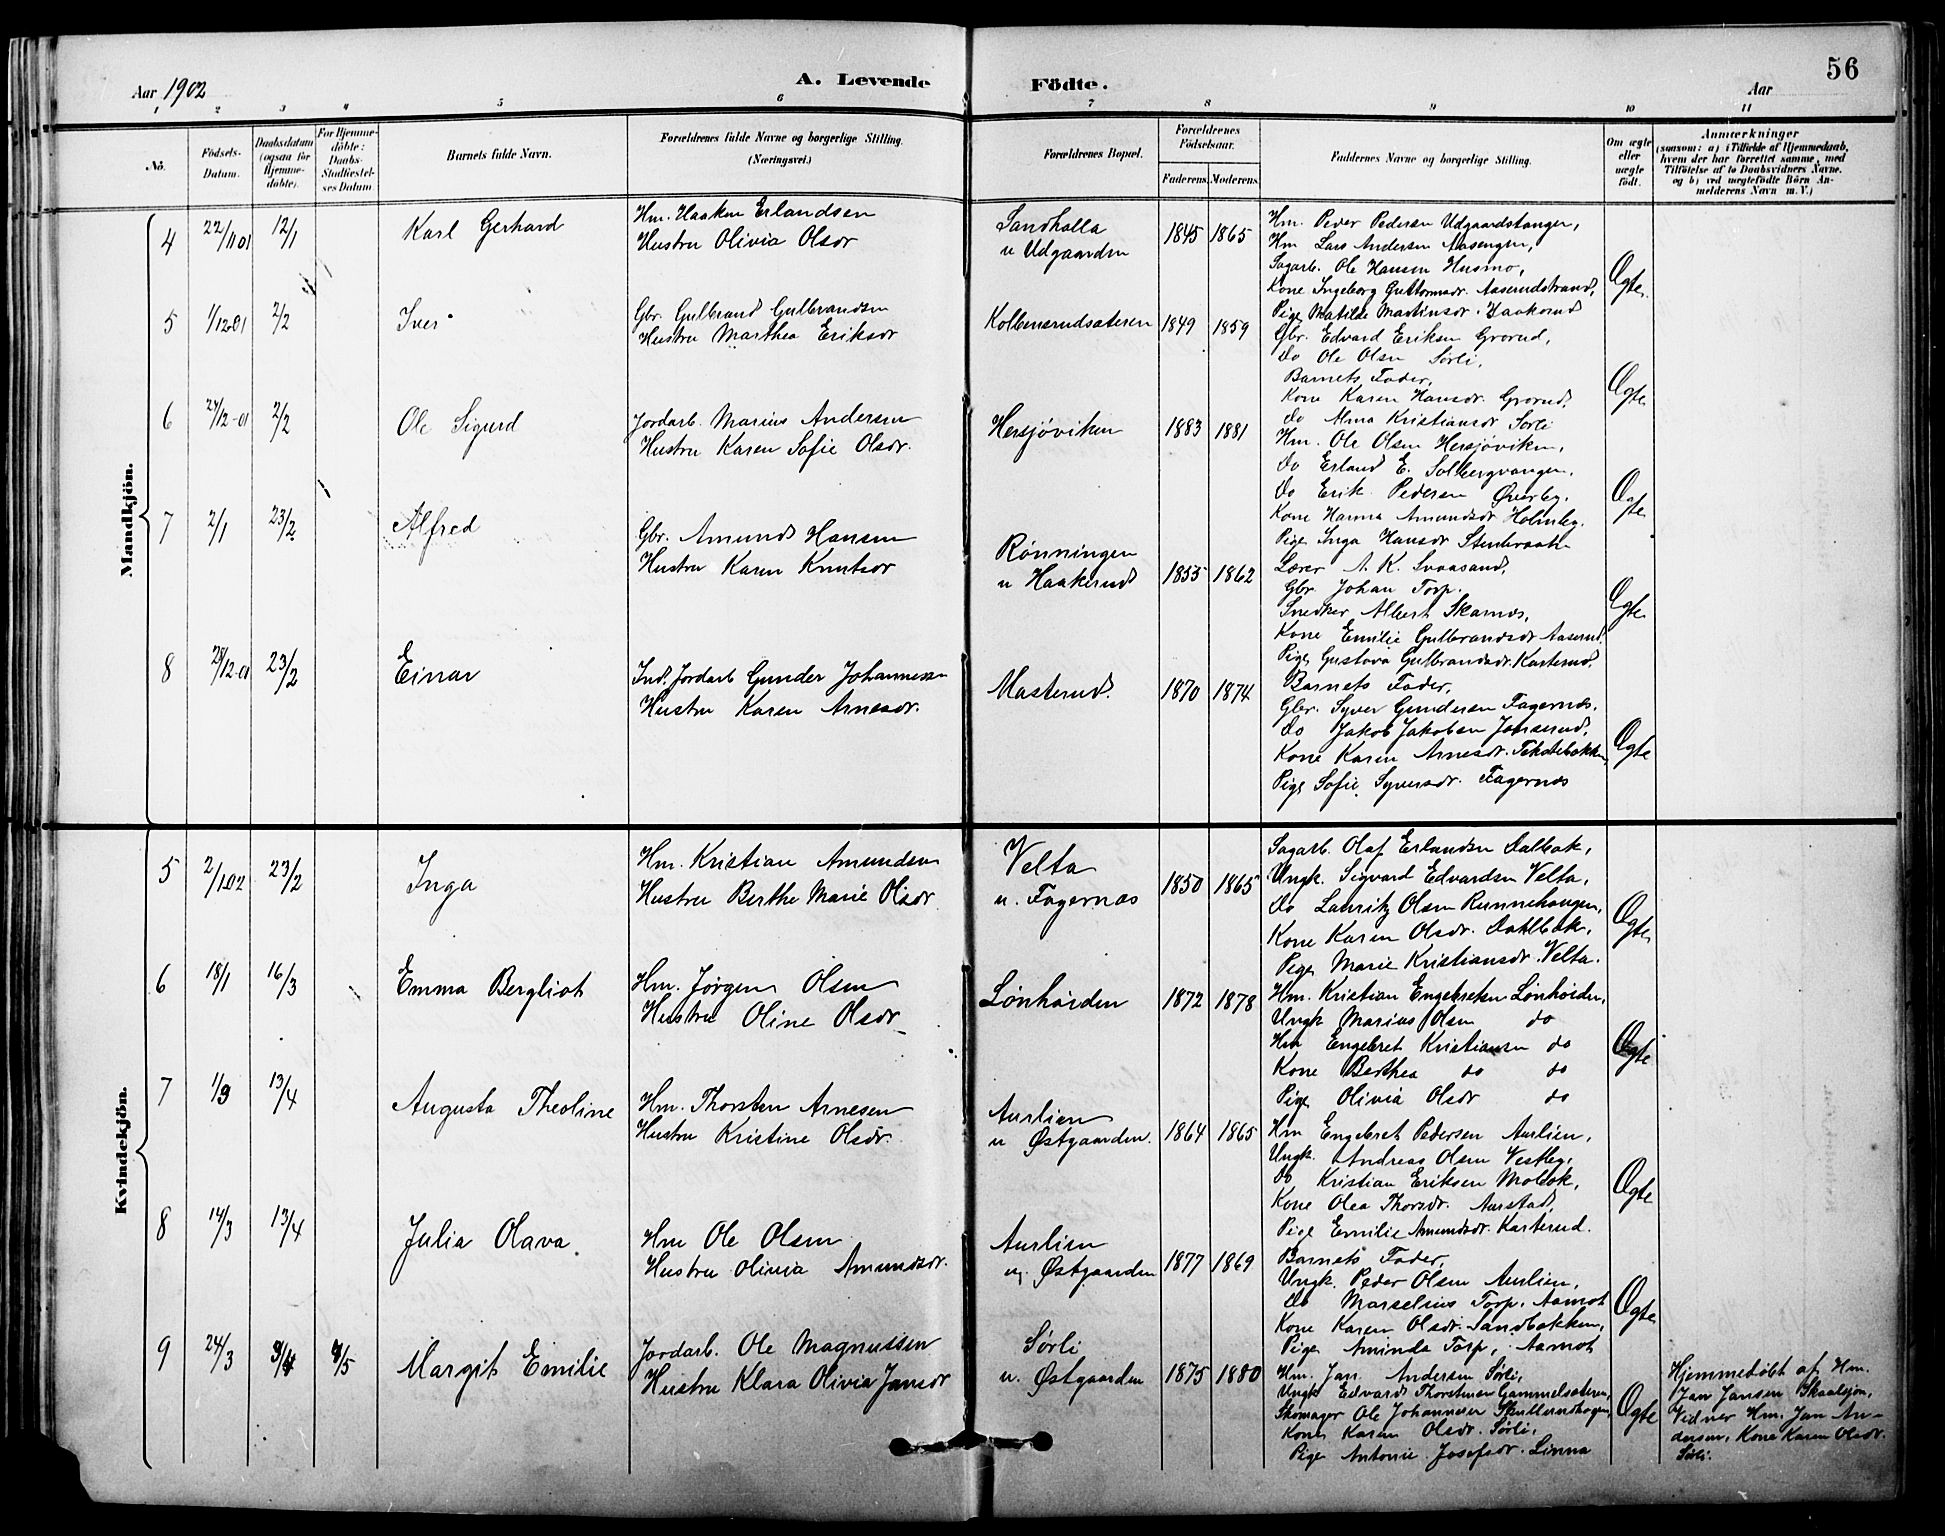 56
Aar 1902
A. Levende Födte.
Aar
1 2 3 4 5 6 7 8 9 10 11
No.
Födsels-Datum.
Daabsdatum (ogsaa for Hjemme-döbte).
For Hjemme-döbte: Daabs-Stadfæstel-ses Datum.
Barnets fulde Navn.
Forældrenes fulde Navne og borgerlige Stilling. (Næringsvei.)
Forældrenes Bopæl.
Forældrenes Födselsaar.
Faderens. Moderens.
Faddernes Navne og borgerlige Stilling.
Om ægte eller uægte födt.
Anmærkninger
(saasom: a) i Tilfælde af Hjemmedaab, hvem der har forrettet samme, med Tilföielse af to Daabsvidners Navne. og b) ved uægtefödte Börn An-melderens Navn m. V.)
Mandkjön.
4 22/11 01 12/1 Karl Gerhard
Hm. Haaken Erlandsen
Hustru Olivia Olsdr
Sandholla
u Udgaarden
1845 1865
Hm. Peder Pedersen Udgaardstangen,
Hm Lars Andersen Aasengen,
Sagarb. Ole Hansen Husmo,
Kone Ingeborg Guttormsdr. Aaserudstrand,
Pige Matilde Martinsdr. Haakerud
Ægte
5 1/12-01 2/2 Iver
Gbr. Gulbrand Gulbrandsen
Hustru Marthea Eriksdr
Kolbensrudsæteren
1849 1859
Gbr. Edvard Eriksen Grorud,
do Ole Olsen Sørli,
Barnets Fader,
Kone Karen Hansdr. Grorud,
do Alma Kristiansdr Sørli
Ægte
6 27/12-01 2/2 Ole Sigurd
Jordarb. Marius Andersen
Hustru Karen Sofie Olsdr.
Hersjøviken
1883 1881
Hm. Ole Olsen Hersjøviken,
do Erland E. Solbergvangen,
do Erik Pedersen Øverby,
Kone Hanna Amundsdr Holmby.
Pige Inga Hansdr Stenbraate
Ægte
7 2/1 23/2 Alfred
Gbr. Amund Hansen
Hustru Karen Knutsdr
Rønningen
u Haakerud
1855 1862
Lærer A. K. Svaasand,
Gbr. Johan Torp.
Snedker Albert Skarnæs,
Kone Emilie Gulbrandsdr Aaserud.
Pige Gustava Gulbrandsdr. Karterud.
Ægte
8 28/12-01 23/2 Einar
Ind. Jordarb Gunder Johannessen
Hustru Karen Arnesdr.
Masterud.
1870 1874
Barnets Fader,
Gbr. Syver Gundersen Fagernæs,
do Jakob Jakobsen Jonsrud,
Kone Karen Arnesdr.
Pige Sofie Syversdr. Fagernæs
Ægte
Kvindekjön.
5 2/1 02 23/2 Inga
Hm. Kristian Amundsen
Hustru Berthe Marie Olsdr
Velta
u. Fagernæs
1850 1865
Sagarb. Olaf Erlandsen Dalbak,
Ungk. Sigvard Edvardsen Velta,
do Lauritz Olsen Runnehaugen,
Kone Karen Olsdr. Dahlbak,
Pige Marie Kristiansdr. Velta.
Ægte
6 18/1 16/3 Emma Bergliot
Hm. Jørgen Olsen
Hustru Oline Olsdr
Lønhøiden
1872 1878
Hm. Kristian Engebretsen Lønhøiden,
Ungk Marius Olsen do
Hm Engebret Kristiansen do
Kone Berthea do do
Pige Olivia Olsdr do
Ægte
7 1/3 13/4 Augusta Theoline
Hm. Thorsten Arnesen
Hustru Kristine Olsdr.
Aurlien
u Østgaarden.
1864 1865
Hm Engebret Pedersen Aurlien,
Ungk. Andreas Olsen Vestby,
do Kristian Eriksen Molbak,
Kone Olea Thorsdr. Aurstad,
Pige Emilie Amundsdr. Karterud.
Ægte
8 14/3 13/4 Julia Olava
Hm Ole Olsen
Hustru Olivia Amundsdr.
Aurlien
u. Østgaarden
1877 1869
Barnets Fader,
Ungk. Peder Olsen Aurlien,
do Marselius Torp, Aamot
Kone Karen Olsdr. Sandbakken,
Pige Aminda Torp, Aamot
Ægte
9 24/3 3/4 4/5 Margit Emilie
Jordarb. Ole Magnussen
Hustru Klara Olivia Jansdr
Sørli
u. Østgaarden
1875 1880
Hm. Jan Andersen Sørli,
Ungk Edvard Thorstensen Gammelsæteren,
Skomager Ole Johannesen Skullerudhagen,
Kone Karen Olsdr. Sørli,
Pige Antonie Josefsdr. Linna
Ægte
Hjemmedøbt af Hm.
Jan Jansen Skaalsjøn,
Vidner Hm. Jan An-
dersen, Kone Karen Olsdr.
Sørli.